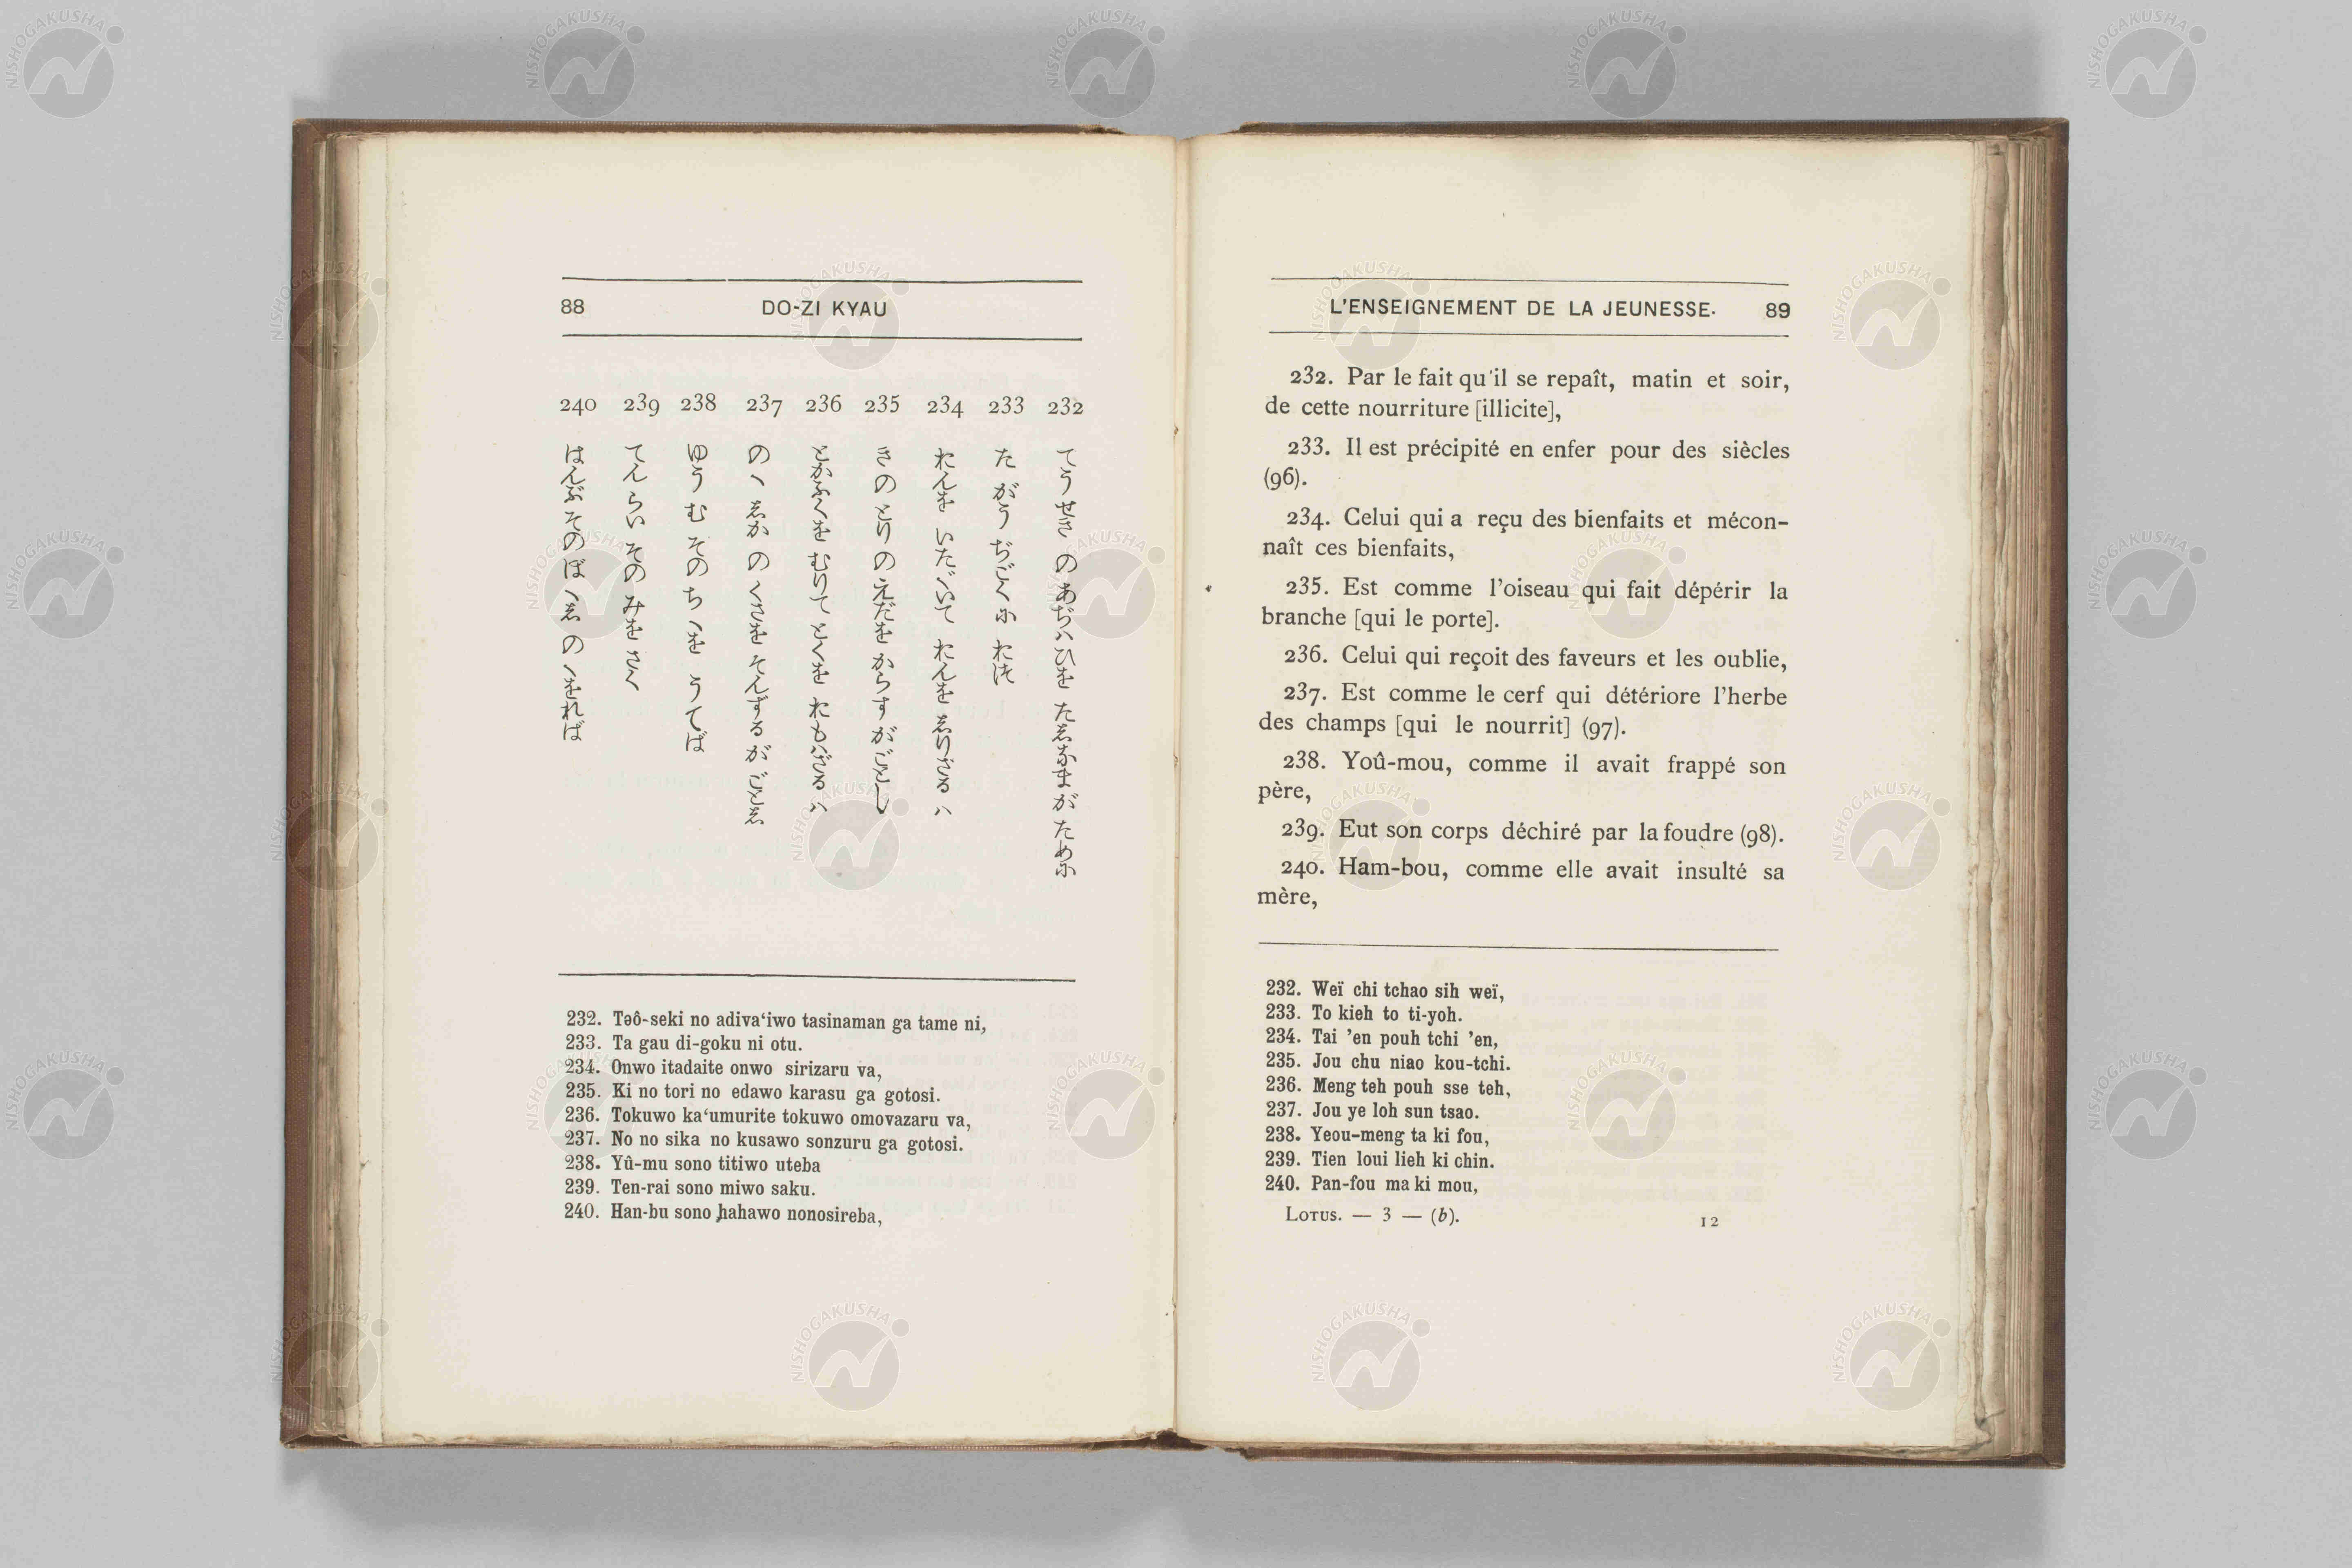 88 DO-ZI KYAU
232 233 234 235 236 237 238 239 240
てうせきのあぢハひを たゑなまがために
たがう ぢごくに おつ
おんを いたゞいて おんを ゑりざるハ
きのとりのえだを からすがごとし
とかふくを むりて とくを おもハざるハ
のゝゑかのくさを そんずるが ごとゑ
ゆうむ そのちゝを うてば
てんらい そのみを さく
はんぶそのはゝゑのゝをれば
232. Təô-seki no adiva‘iwo tasinaman ga tame ni,
233. Ta gau di-goku ni otu.
234. Onwo itadaite onwo sirizaru va,
235. Ki no tori no edawo karasu ga gotosi.
236. Tokuwo ka‘umurite tokuwo omovazaru va,
237. No no sika no kusawo sonzuru ga gotosi.
238. Yû-mu sono titiwo uteba
239. Ten-rai sono miwo saku.
240. Han-bu sono hahawo nonosireba,
L'ENSEIGNEMENT DE LA JEUNESSE. 89
232. Par le fait qu'il se repaît, matin et soir,
de cette nourriture [illicite],
233. Il est précipité en enfer pour des siècles
(96).
234. Celui qui a reçu des bienfaits et mécon-
naît ces bienfaits,
235. Est comme l'oiseau qui fait dépérir la
branche [qui le porte].
236. Celui qui reçoit des faveurs et les oublie,
237. Est comme le cerf qui détériore l'herbe
des champs [qui le nourrit] (97).
238. Yoû-mou, comme il avait frappé son
père,
239. Eut son corps déchiré par la foudre (98).
240. Ham-bou, comme elle avait insulté sa
mère,
232. Weï chi tchao sih weï,
233. To kieh to ti-yoh.
234. Tai 'en pouh tchi 'en,
235. Jou chu niao kou-tchi.
236. Meng teh pouh sse teh,
237. Jou ye loh sun tsao.
238. Yeou-meng ta ki fou,
239. Tien loui lieh ki chin.
240. Pan-fou ma ki mou,
LOTUS. — 3 — (b). 12
NISHOGAKUSHA